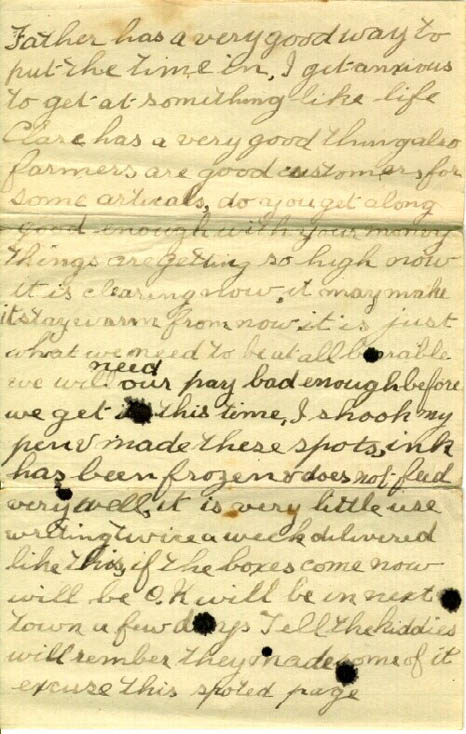 Father has a very good way to
put the time in, I get anxious
to get at something like life
Clare has a very good thing also
farmers are good customers for
some articals, do you get along
good enough with your money
things are getting so high now
it is clearing now, it may make
it stay warm from now it is just
what we need to be at all bearable
we will need our pay bad enough before
we get it this time, I shook my
pen & made these spots, ink
has been frozen & does not feed
very well, it is very little use
writing twice a week delivered
like this, if the boxes come now
will be O.K will be in next
town a few days Tell the kiddies
will rember they made some of it
excuse this spoted page